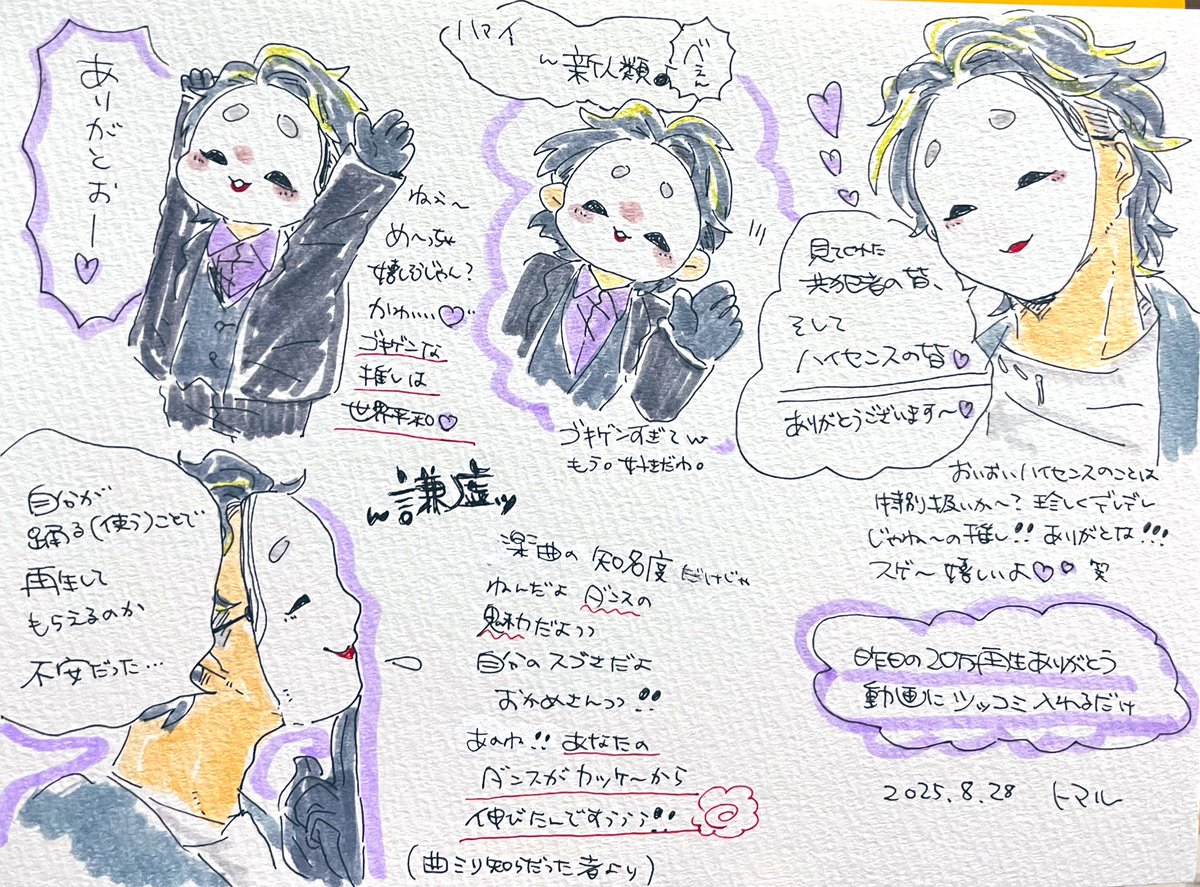 ありがとおー♡
ハマイ
w新人類♪
べぇん
ねぇ〜
め〜っちゃ
嬉しそじゃん?
かわいい♡
ゴキゲンな
推しは
世界平和♡
ゴキゲンすぎてw
もう。好きだわ。
見てくれた
共犯者の皆、
そして
ハイセンスの皆♡
ありがとうございます〜♡
おいおいハイセンスのことは
特別扱いか〜?珍しくデレデレ
じゃね〜の推し!!ありがとな!!!
スゲ〜嬉しいよ♡♡笑
自分が
踊る(使う)ことで
再生して
もらえるのか
不安だった…
w謙虚ッ
楽曲の知名度だけじゃ
ねんだよダンスの
魅力だよっっ
自分のスゴさだよ
おかめさんっっ!!
あのね!!あなたの
ダンスがカッケーから
伸びたんですぅぅぅ!!
(曲ミリ知らだった者より)
昨日の20万再生ありがとう
動画にツッコミ入れるだけ
2025.8.28 トマル